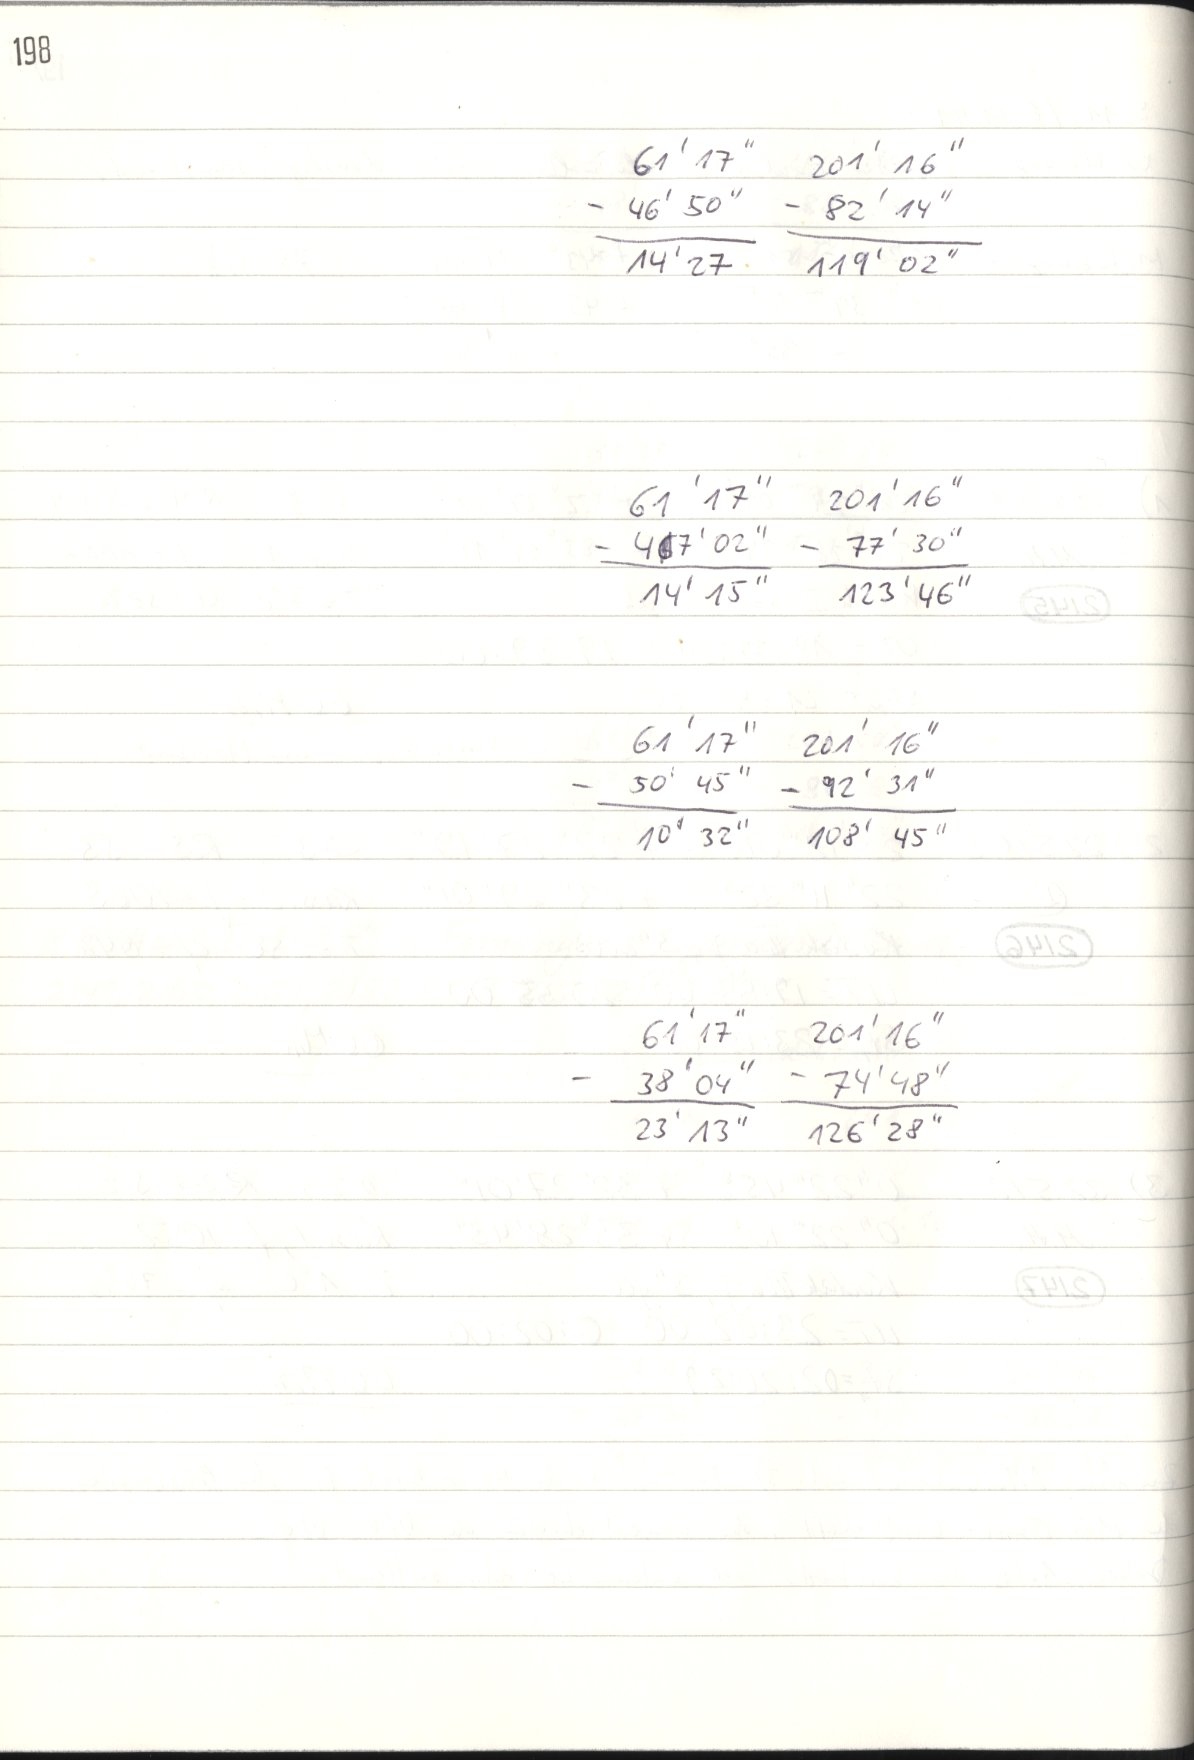 198
61' 17" 201' 16"
- 46' 50" - 82' 14"
14' 27 119' 02"
61' 17" 201' 16"
- 47' 02" - 77' 30"
14' 15" 123' 46"
61' 17" 201' 16"
- 50' 45" - 92' 31"
10' 32" 108' 45"
61' 17" 201' 16"
- 38' 04" - 74' 48"
23' 13" 126' 28"